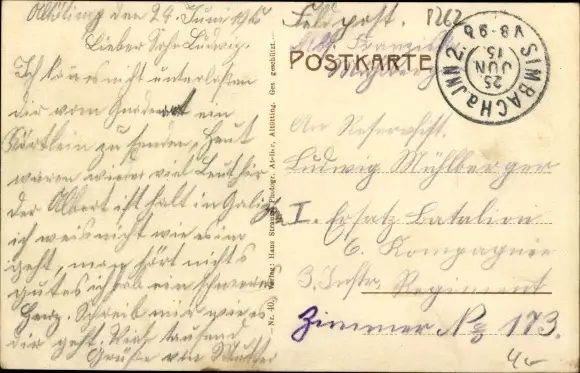 Altötting den 24. Juni 1915
Lieber Sohn Ludwig.
Ich kan es nicht unterlaßen
dir vom Gnadenort ein
Kärtlein zu senden, Heut
waren wieder viel Leut hir
der Albert ist halt in Galiz
ich weis nicht wie es im
geht, man hört nichts
gutes ich hab ein schweres
Herz. Schreib mir wie es
dir geht. Viele tausend
Grüße von Mutter
Nr. 40. Verlag: Hans Strauss, Photogr. Atelier, Altötting. Ges. geschützt.
Feldpost. 8262
POSTKARTE
Mühlberger
SIMBACH a. INN 2.
25 JUN 15
V8-9b
An Reservist
Ludwig Mühlberger
I. Ersatz Batalion
6. Kompagnie
3. Inftr. Regiment
Zimmer No 173.